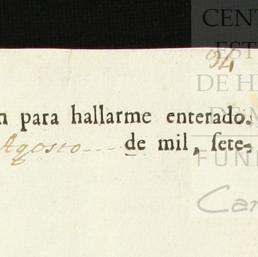 CENT
EST
34
DE H
DEM
n para hallarme enterado.
Agosto de mil, sete-
FUND
Car